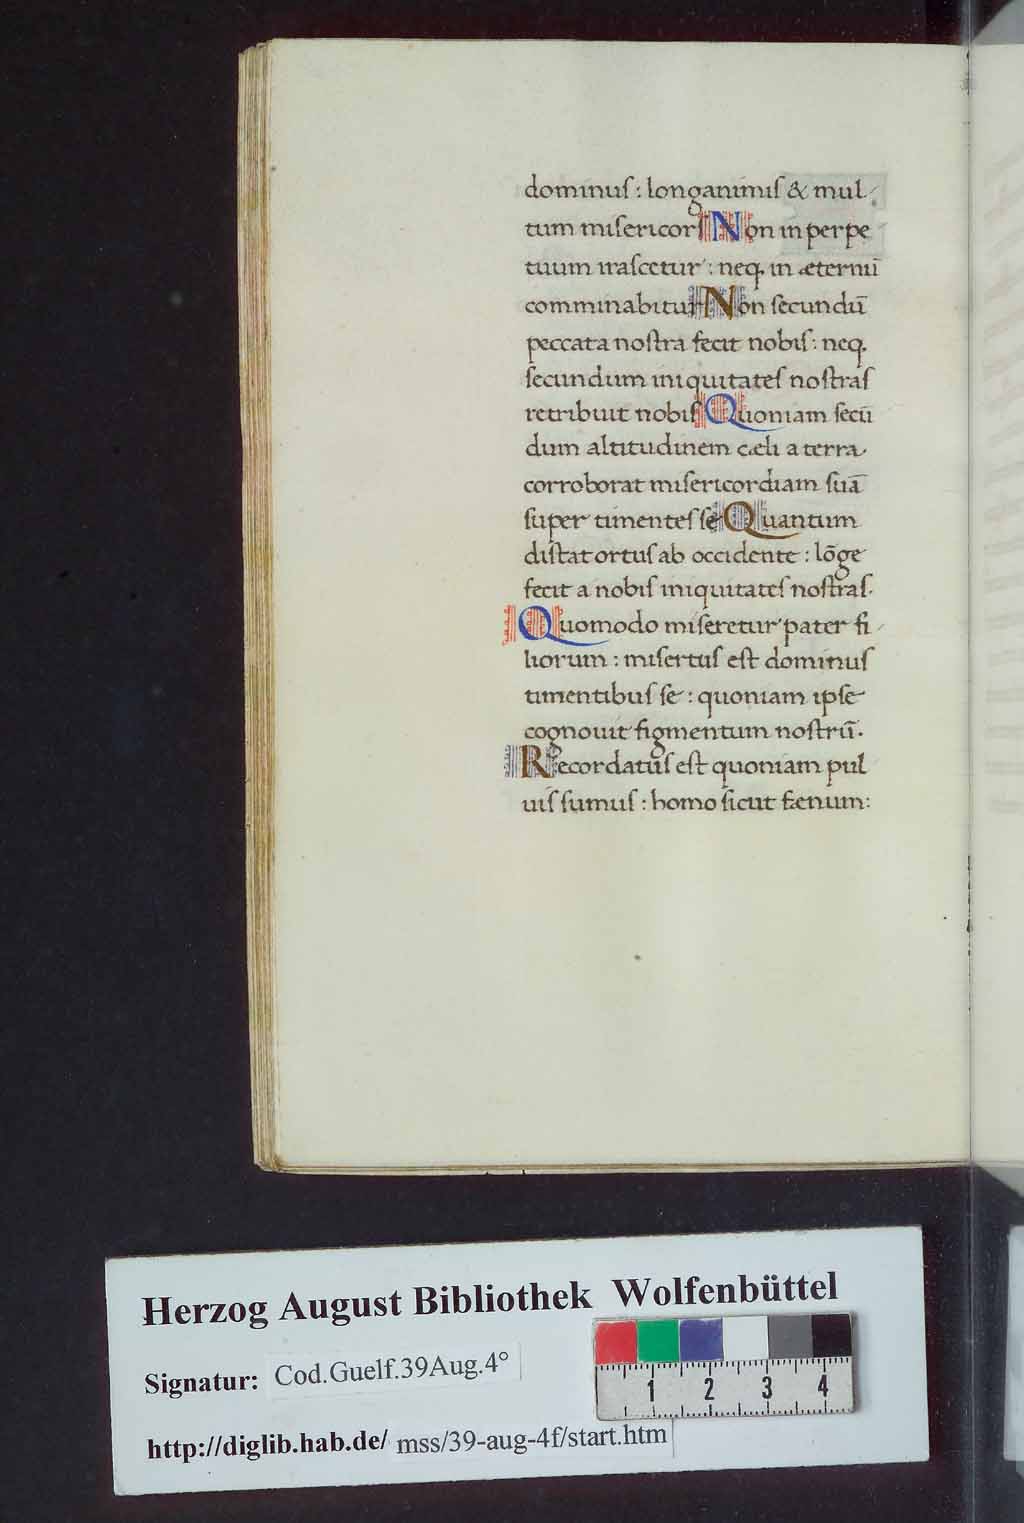 dominuſ : longanimiſ & mul-
tum miſericorſ Non in perpe
tuum iraſcetur : neq. in æternū
comminabitur Non ſecundū
peccata noſtra fecit nobiſ : neq.
ſecundum iniquitateſ noſtraſ
retribuit nobiſ Quoniam ſecū
dum altitudinem cæli a terra
corroborat miſericordiam ſuā
ſuper timenteſ ſe Quantum
diſtat ortuſ ab occidente : lōge
fecit a nobiſ iniquitateſ noſtraſ.
Quomodo miſeretur pater fi-
liorum : miſertuſ eſt dominuſ
timentibuſ ſe : quoniam ipſe
cognouit figmentum noſtrū.
Recordatuſ eſt quoniam pul
uiſ ſumuſ : homo ſicut fœnum :
Herzog August Bibliothek Wolfenbüttel
Signatur: Cod.Guelf.39Aug.4°
http://diglib.hab.de/ mss/39-aug-4f/start.htm
1 2 3 4